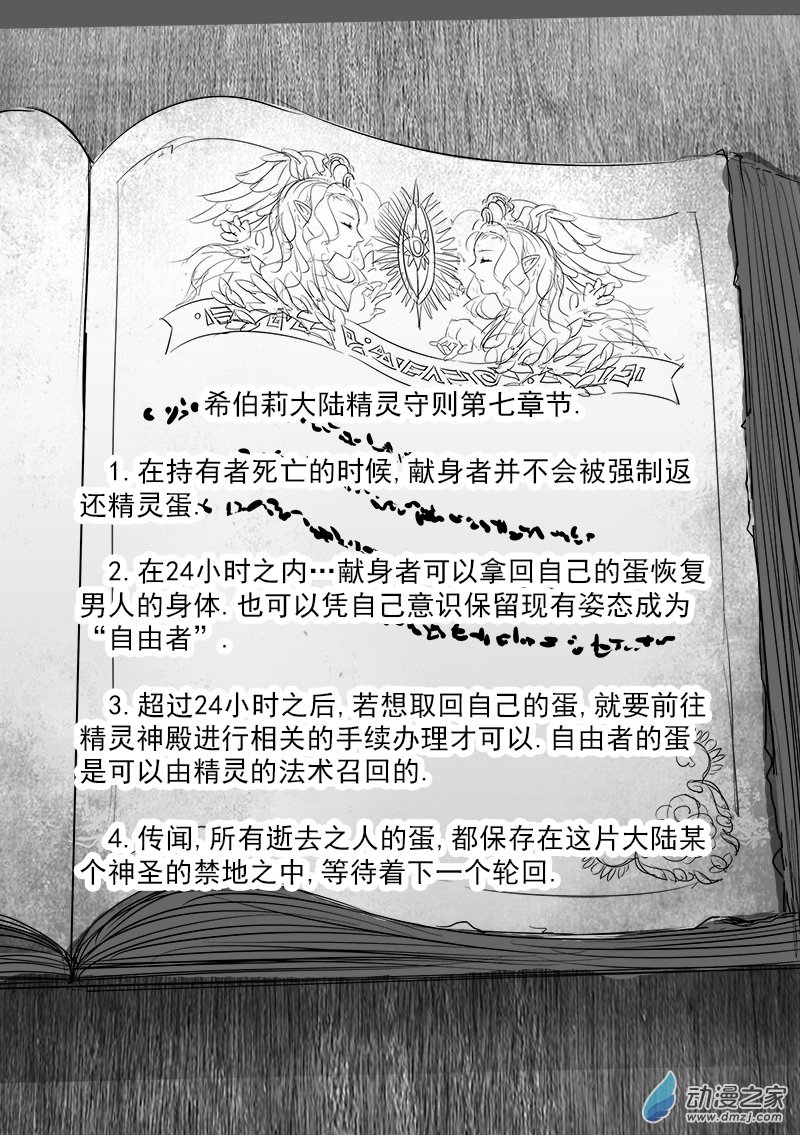 希伯莉大陆精灵守则第七章节.
1. 在持有者死亡的时候,献身者并不会被强制返
还精灵蛋.
2. 在24小时之内…献身者可以拿回自己的蛋恢复
男人的身体.也可以凭自己意识保留现有姿态成为
“自由者”.
3. 超过24小时之后,若想取回自己的蛋,就要前往
精灵神殿进行相关的手续办理才可以.自由者的蛋
是可以由精灵的法术召回的.
4. 传闻,所有逝去之人的蛋,都保存在这片大陆某
个神圣的禁地之中,等待着下一个轮回.
动漫之家
www.dmzj.com